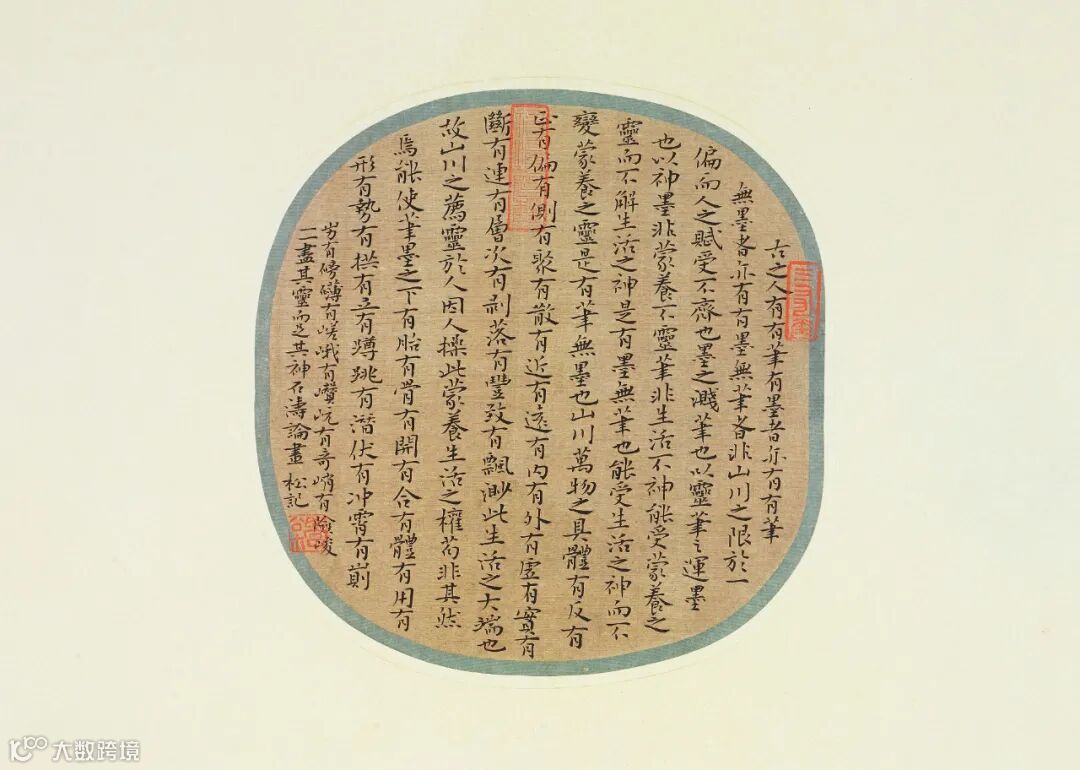 古之人有有筆有墨者亦有有筆
無墨者亦有有墨無筆者非山川之限於一
偏而人之賦受不齊也墨之濺筆也以靈筆之運墨
也以神墨非蒙養不靈筆非生活不神能受蒙養之
靈而不解生活之神是有墨無筆也能受生活之神而不
變蒙養之靈是有筆無墨也山川萬物之具體有反有
正有偏有側有聚有散有近有遠有內有外有虛有實有
斷有連有層次有剥落有豐致有飄渺此生活之大端也
故山川之薦靈於人因人操此蒙養生活之權苟非其然
焉能使筆墨之下有胎有骨有開有合有體有用有
形有勢有拱有立有蹲跳有潛伏有冲霄有崱
屴有傍礴有嵯峨有巑岏有奇峭有險峻
一一盡其靈而足其神石濤論畫 松記
大数跨境